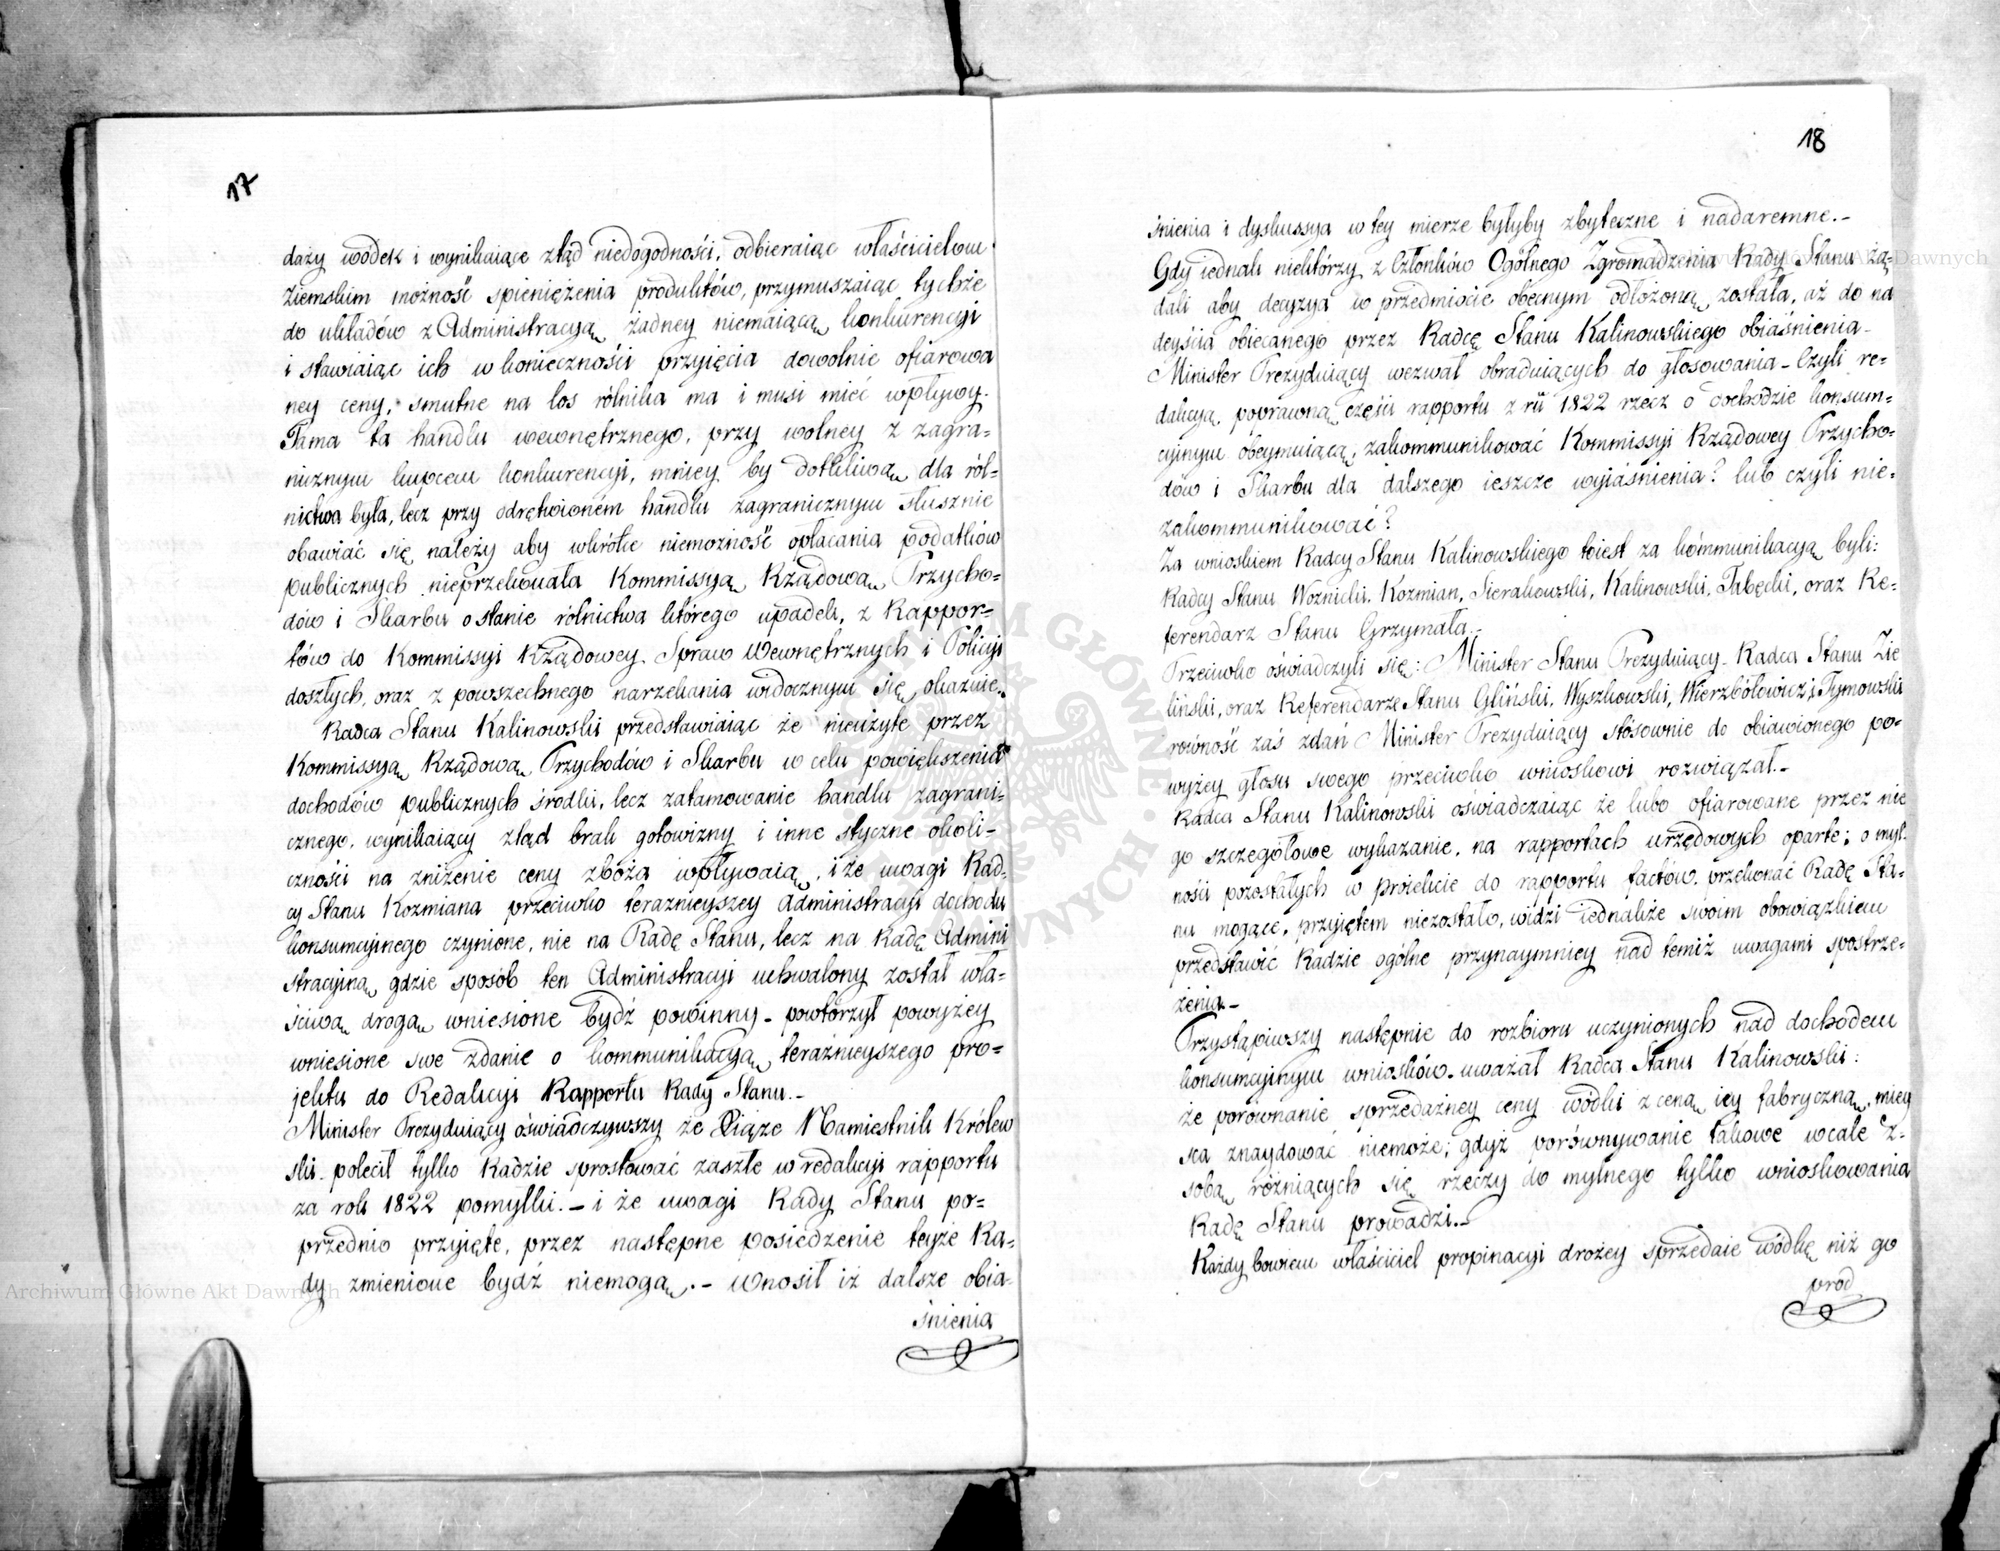 17
daży wódek i wynikaiące ztąd niedogodności, odbieraiąc właścicielom
ziemskim możność spieniężenia produktów, przymuszaiąc tychże
do układów z Administracyą żadney niemaiącą konkurencyi
i stawiaiąc ich w konieczności przyięcia dowolnie ofiarowa
ney ceny, smutne na los rólnika ma i musi mieć wpływy.
Tama ta handlu wewnętrznego, przy wolney z zagra-
nicznym kupcem konkurencyi, mniey by dotkliwą dla ról-
nictwa była, lecz przy odrętwioném handlu zagranicznym słusznie
obawiać się należy aby wkrótce niemożność opłacania podatków
publicznych nieprzekonała Kommissyą Rządową Przycho-
dów i Skarbu o stanie rólnictwa którego upadek, z Rappor-
tów do Kommissyi Rządowey Spraw Wewnętrznych i Policyi
doszłych, oraz z powszechnego narzekania widocznym się okazuie.
Radca Stanu Kalinowski przedstawiaiąc że nieużyte przez
Kommissyą Rządową Przychodów i Skarbu w celu powiększenia
dochodów publicznych środki, lecz zatamowanie handlu zagrani-
cznego, wynikaiący ztąd brak gotowizny i inne styczne okoli-
czności na zniżenie ceny zboża wpływaią, i że uwagi Rad-
cy Stanu Kozmiana przeciwko teraznieyszey Administracyi dochodu
konsumcyinego czynione, nie na Radę Stanu, lecz na Radę Admini
stracyiną gdzie sposób ten Administracyi uchwalony został wła-
ściwą drogą wniesione bydź powinny - powtórzył powyżey
wniesione swe zdanie o kommunikacyą teraznieyszego pro-
jektu do Redakcyi Rapportu Rady Stanu.-
Minister Prezyduiący oświadczywszy że Xiąże Namiestnik Królew
ski polecił tylko Radzie sprostować zaszłe w redakcyi rapportu
za rok 1822 pomyłki. - i że uwagi Rady Stanu po-
przednio przyięte, przez następne posiedzenie teyże Ra-
dy zmienione bydź niemogą. - wnosił iż dalsze obia-
śnienia
18
śnienia i dyskussya w tey mierze byłyby zbyteczne i nadaremne.-
Gdy iednak niektórzy z Członków Ogólnego Zgromadzenia Rady Stanu żą-
dali aby decyzya w przedmiocie obecnym odłożoną została, aż do na
deyścia obiecanego przez Radcę Stanu Kalinowskiego obiaśnienia -
Minister Prezyduiący wezwał obraduiących do głosowania - Czyli re-
dakcyą, poprawną części rapportu z rũ 1822 rzecz o dochodzie konsum-
cyinym obeymuiącą, zakommunikować Kommissyi Rządowey Przycho-
dów i Skarbu dla dalszego ieszcze wyiaśnienia? lub czyli nie-
zakommunikować?
Za wnioskiem Radcy Stanu Kalinowskiego toiest za kommunikacyą byli:
Radcy Stanu Woznicki, Kozmian, Sierakowski, Kalinowski, Tabęcki, oraz Re-
ferendarz Stanu Grzymała.-
Przeciwko oświadczyli się: Minister Stanu Prezyduiący - Radca Stanu Zie
liński, oraz Referendarze Stanu Gliński, Wyszkowski, Wierzbółowicz i Tymowski
równość zaś zdań Minister Prezyduiący stósownie do obiawionego po-
wyżey głosu swego przeciwko wnioskowi rozwiązał.-
Radca Stanu Kalinowski oświadczaiąc że lubo ofiarowane przez nie
go szczegółowe wykazanie, na rapportach urzędowych oparte; o myl-
ności pozostałych w proiekcie do rapportu factów, przekonać Radę Sta-
nu mogące, przyiętem niezostało, widzi iednakże swoim obowiązkiem
przedstawić Radzie ogólne przynaymniey nad temiż uwagami spostrze-
żenia.-
Przystąpiwszy następnie do rozbioru uczynionych nad dochodem
konsumcyinym wniosków, uważał Radca Stanu Kalinowski:
że porównanie sprzedażney ceny wódki z ceną iey fabryczną, miey
sca znaydować niemoże; gdyż porównywanie takowe wcale z-
sobą różniących się rzeczy do mylnego tylko wnioskowania
Radę Stanu prowadzi.-
Każdy bowiem właściciel propinacyi drożey sprzedaie wódkę niż go
prod
Archiwum Główne Akt Dawnych